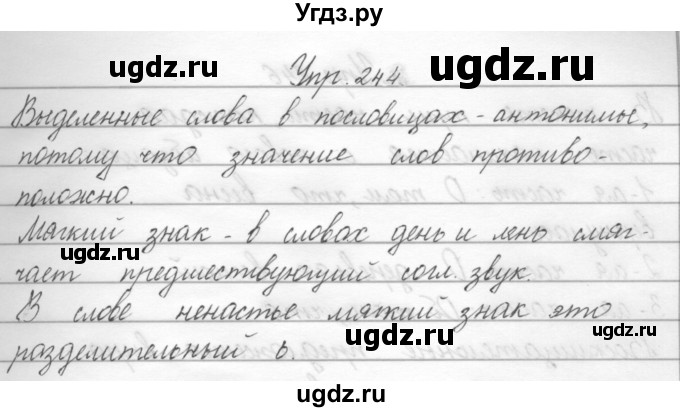 Угдз.ру
ugdz.ru ugdz.ru
Упр. 244
Выделенные слова в пословицах - антонимы,
ugdz.ru
потому что значение слов противо-
положно.
Мягкий знак - в словах день и лень смяг-
ugdz.ru
чает предшествующий согл. звук.
В слове ненастье мягкий знак это
ugdz.ru ugdz.ru
разделительный ь.
ugdz.ru